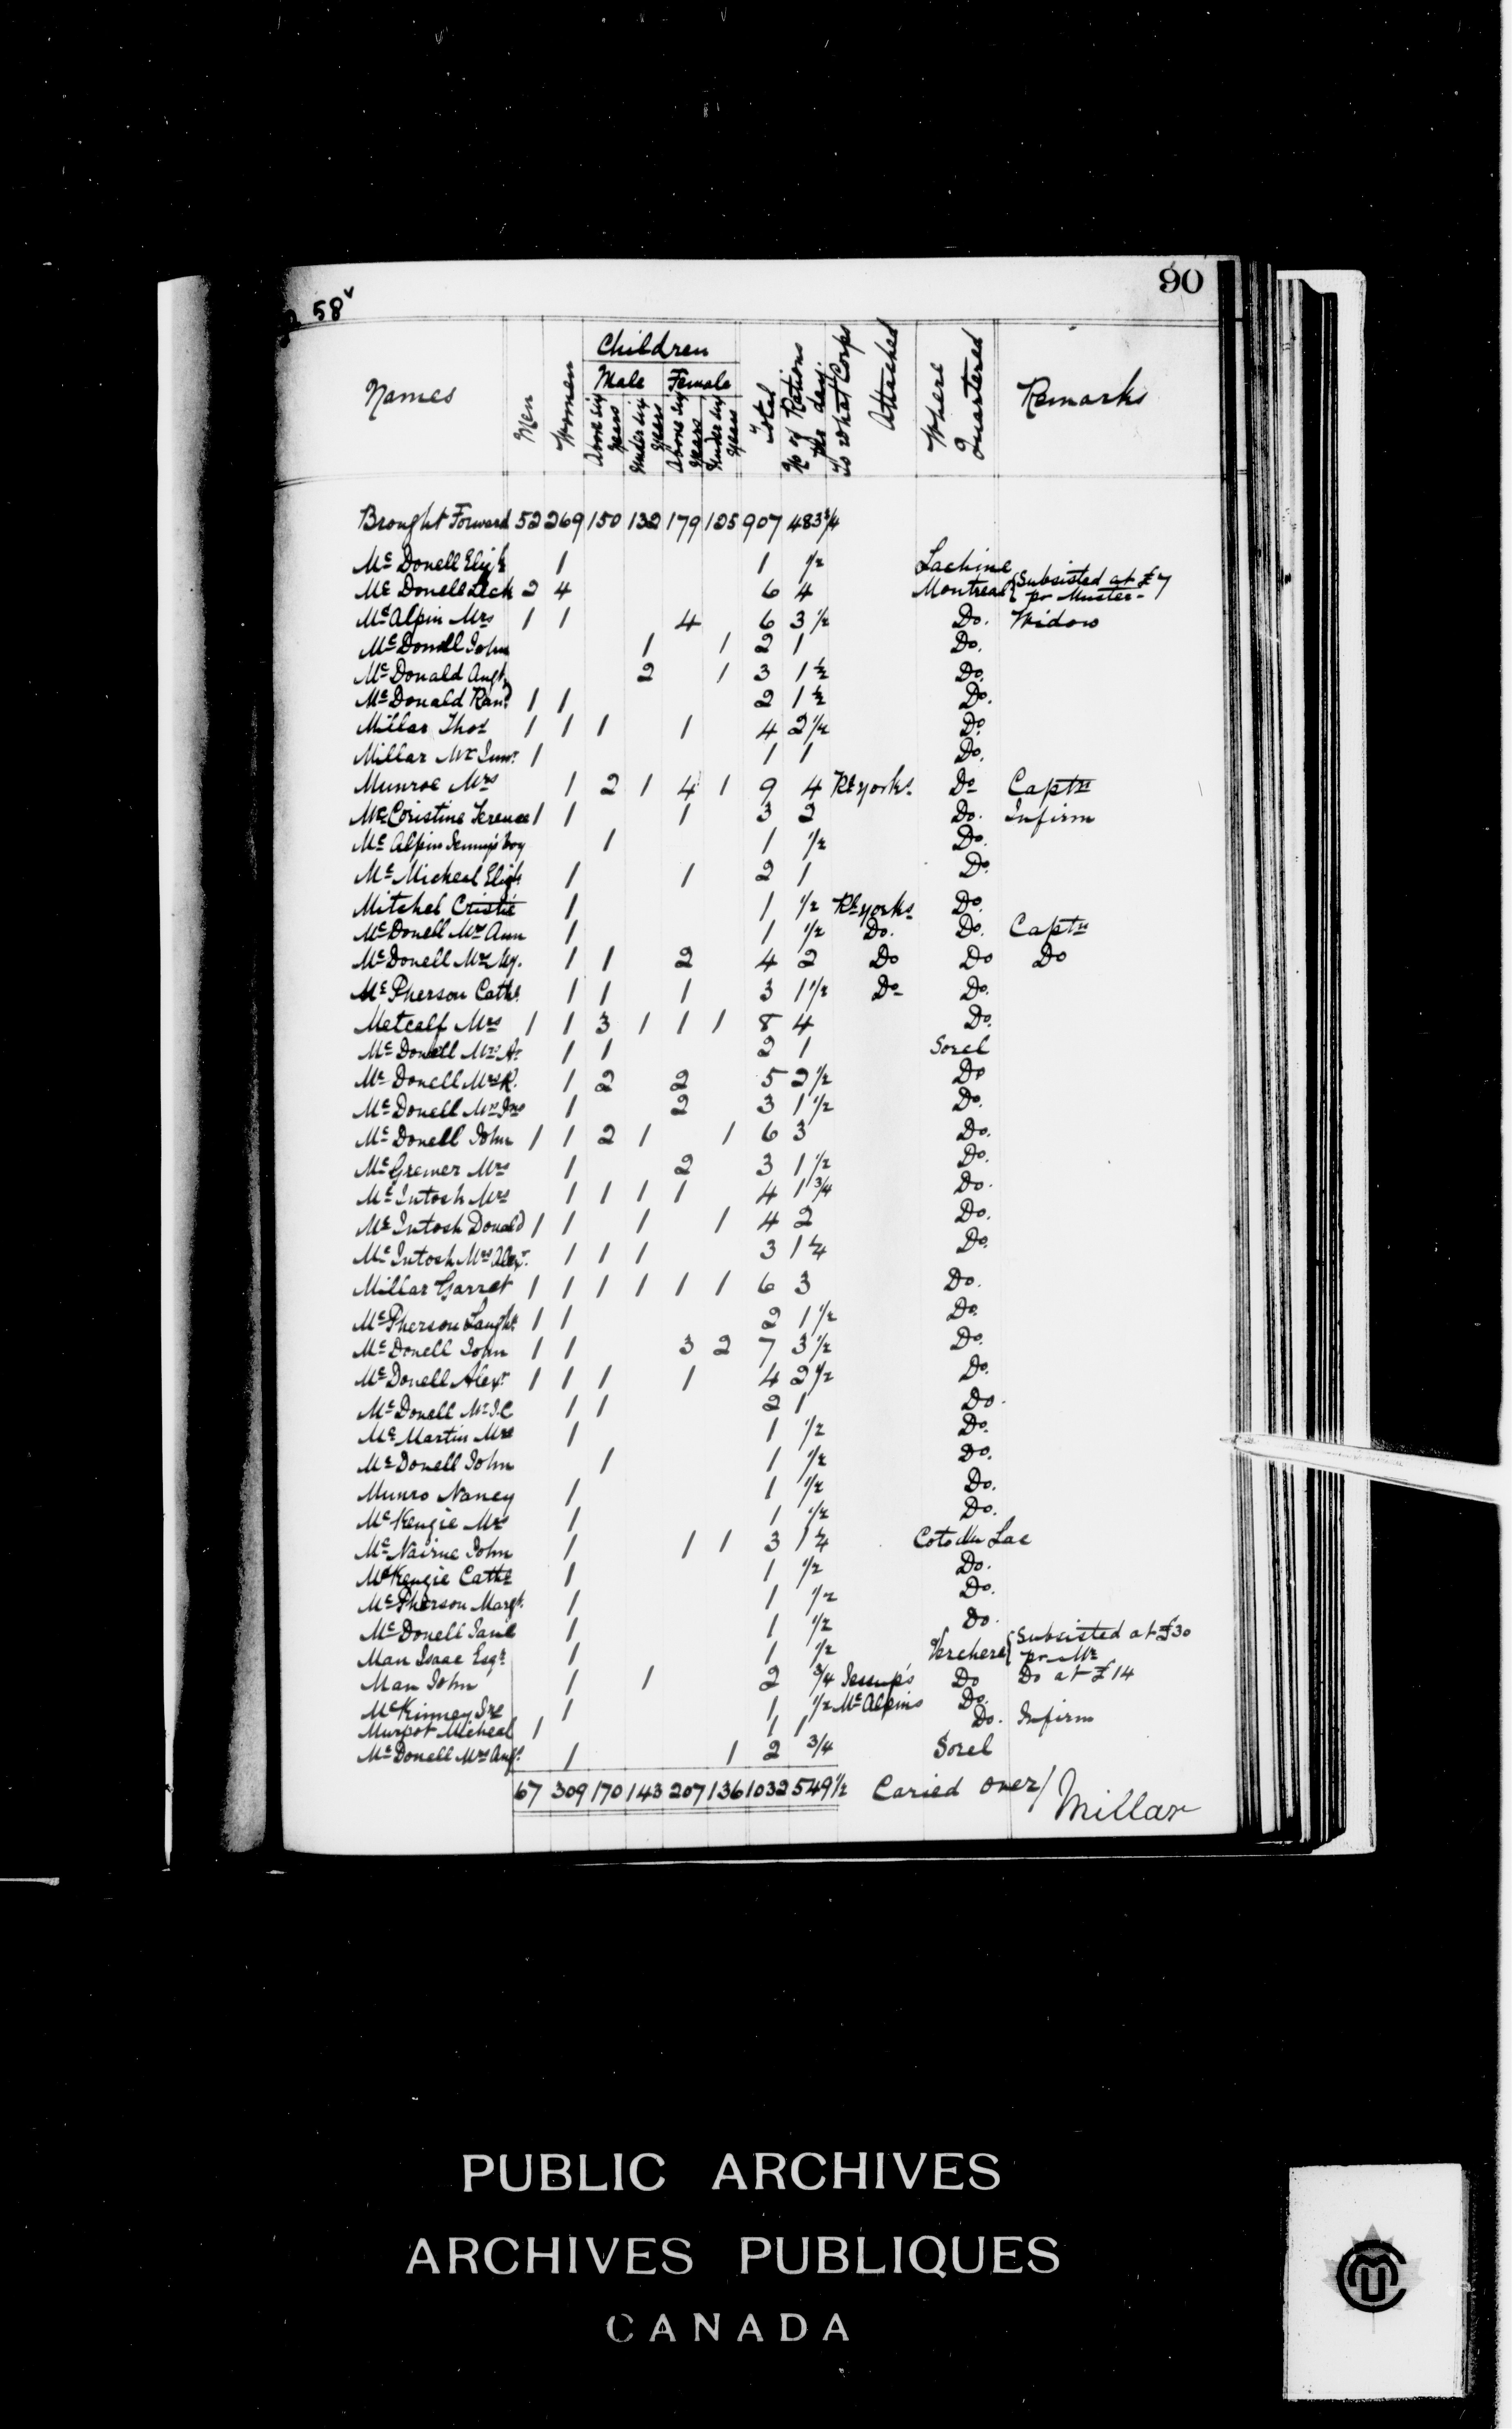 90
58v
Names Men Women Children Total No of Rations per day To what Corps Attached Where Quartered Remarks
Male Female
Above six Years Under six Years Above six Years Under six Years
Brought Forward 52 269 150 132 179 125 907 483 3/4
Mc Donell Elizh 1 1 1/2 Lachine
Mc Donell Leck 2 4 6 4 Montreal { Subsisted at £7 pr Muster-
Mc Alpin Mrs 1 1 4 6 3 1/2 Do. Widow
Mc Donell John 1 1 2 1 Do.
Mc Donald Augt 2 1 3 1 1/2 Do.
Mc Donald Rand 1 1 2 1 1/2 Do.
Millar Thos 1 1 1 1 4 2 1/2 Do
Millar Wm Junr 1 1 1 Do.
Munroe Mrs 1 2 1 4 1 9 4 Rl yorks. Do Captn
Mc Coristine Terence 1 1 1 3 2 Do. Infirm
Mc Alpin Jenny's boy 1 1 1/2 Do.
Mc Micheal Elizh 1 1 2 1 Do.
Mitchel Cristie 1 1 1/2 Rl yorks Do.
Mc Donell Mrs Ann 1 1 1/2 Do. Do. Captn
Mc Donell Mrs My. 1 1 2 4 2 Do Do Do
Mc Pherson Cathe 1 1 1 3 1 1/2 Do Do.
Metcalf Mrs 1 1 3 1 1 1 8 4 Do.
Mc Donell Mrs A. 1 1 2 1 Sorel
Mc Donell Mrs R. 1 2 2 5 2 1/2 Do
Mc Donell Mrs Jno 1 2 3 1 1/2 Do.
Mc Donell John 1 1 2 1 1 6 3 Do.
Mc Gremer Mrs 1 2 3 1 1/2 Do.
Mc Intosh Mrs 1 1 1 1 4 1 3/4 Do.
Mc Intosh Donald 1 1 1 1 4 2 Do.
Mc Intosh Mrs Alexr. 1 1 1 3 1 1/4 Do.
Millar Garret 1 1 1 1 1 1 6 3 Do.
Mc Pherson Laughn 1 1 2 1 1/2 Do.
Mc Donell John 1 1 3 2 7 3 1/2 Do.
Mc Donell Alexr 1 1 1 1 4 2 1/2 Do.
Mc Donell Mr J.C 1 1 2 1 Do.
Mc Martin Mrs 1 1 1/2 Do.
Mc Donell John 1 1 1/2 Do.
Munro Nancy 1 1 1/2 Do.
Mc Kenzie Mrs 1 1 1/2 Do.
Mc Nairne John 1 1 1 3 1 1/4 Coto du Lac
McKenzie Cathe 1 1 1/2 Do.
Mc Pherson Margt. 1 1 1/2 Do.
Mc Donell Jane 1 1 1/2 Do.
Man Isaac Esqr 1 1 1/2 Verchere { Subsisted at £30 pr Mr
Man John 1 1 2 3/4 Jessup's Do Do at £14
McKinney Sre 1 1 1/2 McAlpins Do.
Murpot Micheal 1 1 1 Do. Infirm
Mc Donell Mrs Augs. 1 1 2 3/4 Sorel
67 309 170 143 207 136 1032 549 1/2 Caried over/ Millar
PUBLIC ARCHIVES
ARCHIVES PUBLIQUES
CANADA